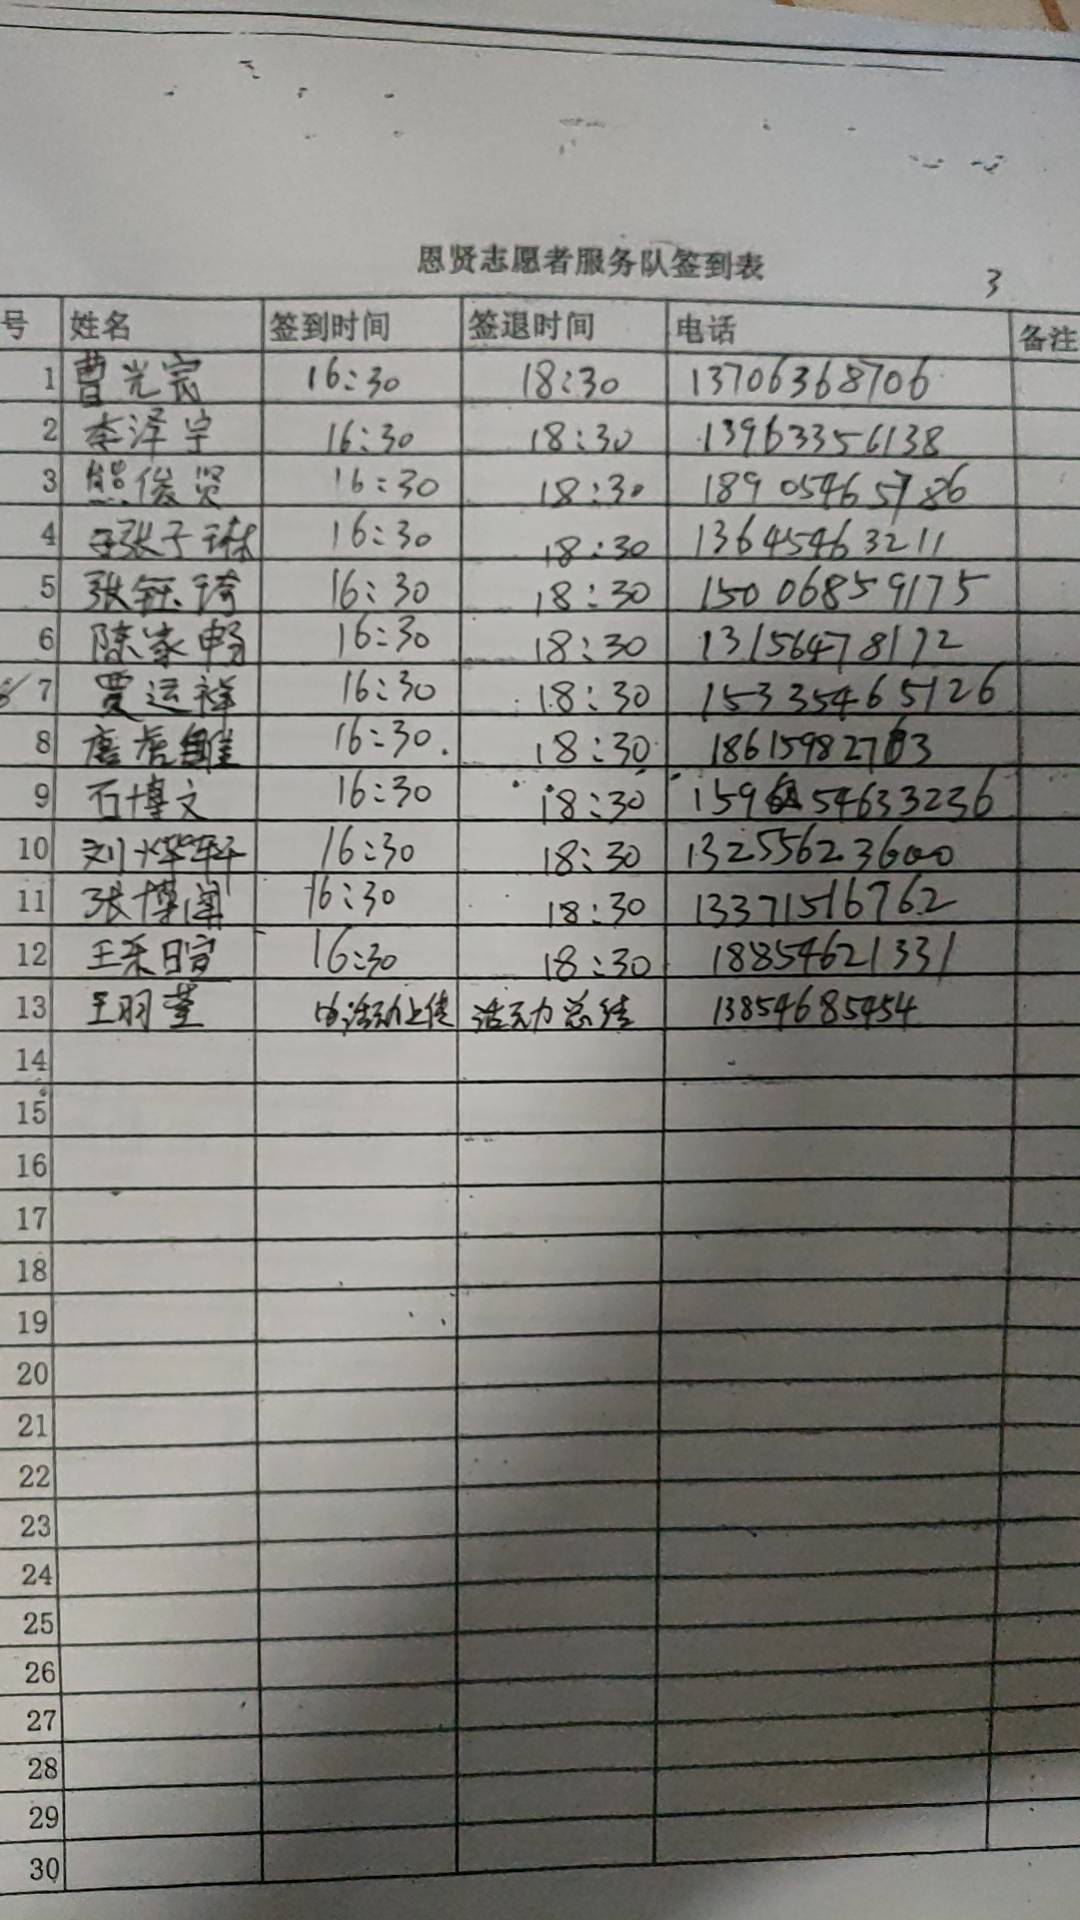 恩贤志愿者服务队签到表
3
号 姓名 签到时间 签退时间 电话 备注
1 曹光宸 16:30 18:30 13706368706
2 李泽宇 16:30 18:30 13963356138
3 熊俊贤 16:30 18:30 18905465786
4 张子琳 16:30 18:30 13645463211
5 张钰琦 16:30 18:30 15006859175
6 陈家畅 16:30 18:30 13156478172
7 贾运祥 16:30 18:30 15335465126
8 唐 16:30 18:30
9 石博文 16:30 18:30
10 刘烨轩 16:30 18:30 13255623600
11 张博闻 16:30 18:30 13371516762
12 王采日宣 16:30 18:30 18854621331
13 王羽堇 活动上传 活动总结 13854685454
14
15
16
17
18
19
20
21
22
23
24
25
26
27
28
29
30